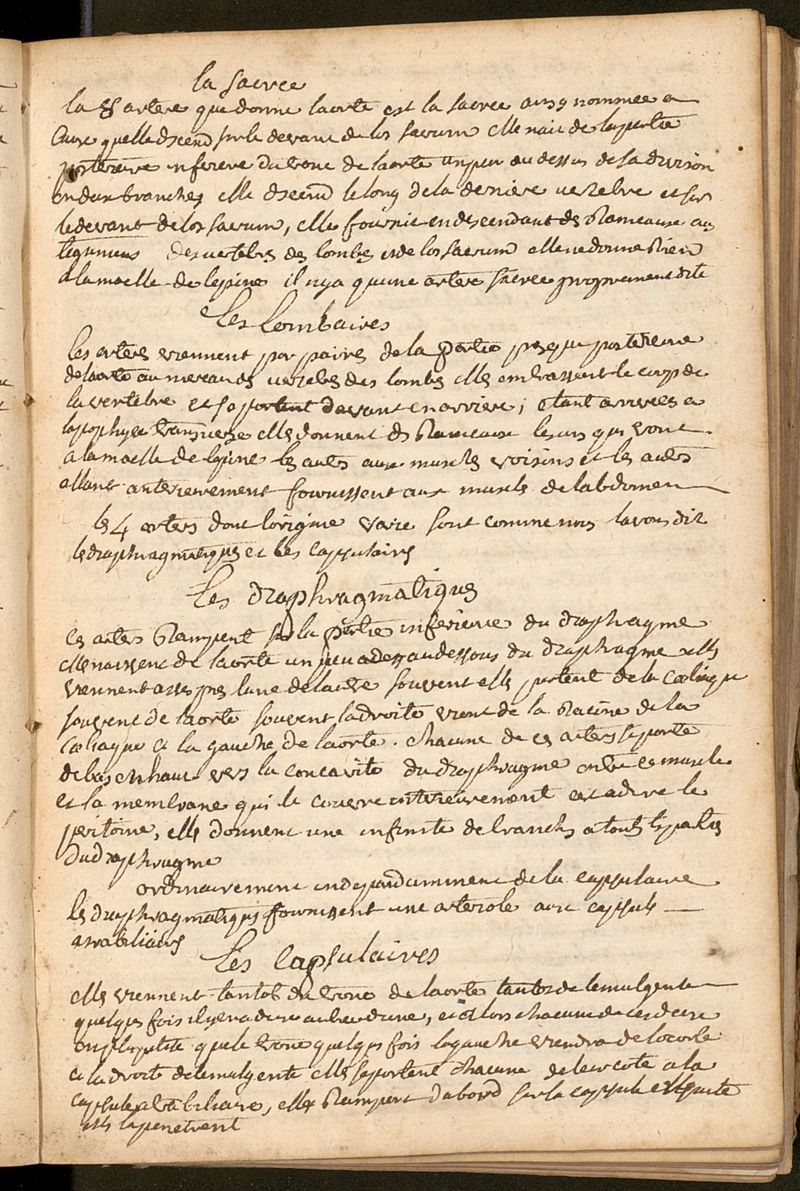 la sacree
la 8 artere que donne laorte est la sacree ainsy nommee a
Cause quelle dscend sur le devant de los sacrum elle nait de la partie
posterieure inferieure du tronc de laorte un peu au dessus de la division
en deux branches elle dscend le long de la derniere vertebre et sur
le devant de los sacrum, elle fournit en descendant des Rameaux aux
tegumens des vertebres des lombes et de los sacrum elle ne donne Rien
a la moelle de lepine il nya quune artere sacree proprement dite
Les Lombaires
les arteres viennent par paires de la partie presque posterieure
de laorte au niveau des vertebres des lombes elles embrassent le corps de
la vertebre et se portent devant en arriere; etant arrivees a
lapophyse transverse elles donnent des Rameaux les uns qui vont
a la moelle de lepine les autres aux muscles voisins et les autres
allant anterieurement fournissent aux muscles de labdomen
les 4 arteres dont lorigine varie sont comme nous lavons dit
les diaphragmatiques et les capsulaires
Les diaphragmatiques
ces arteres Rampent sur la partie inferieure du diaphragme
elle naissent de laorte un peu au dessous du diaphragme elles
viennent asses pres lune de lautre souvent elles partent de la coeliaque
souvent de laorte souvent la droite vient de la Racine de la
coeliaque et la gauche de laorte. chacune de ces arteres se porte
de bas en haut vers la concavite du diaphragme entre ce muscle
et la membrane qui le couvre interieurement cest a dire le
peritoine, elles donnent une infinite de branches a toute les parties
du diaphragme
ordinairement independamment de la capsulaire
les diaphragmatiques fournissent une arteriole aux capsules
atrabiliaires
Les capsulaires
elles viennent tantot du tronc de laorte tantot de lemulgente
quelques fois il y en a deux au lieu dune, et alors chacune de ces deux
est plus petite que le tronc quelques fois la gauche viendra de laorte
et la droite de lemulgente elles se portent chacune de leur cote a la
capsule atrabiliaire, elles Rampent dabord sur la capsule ensuite
elles la penetrent